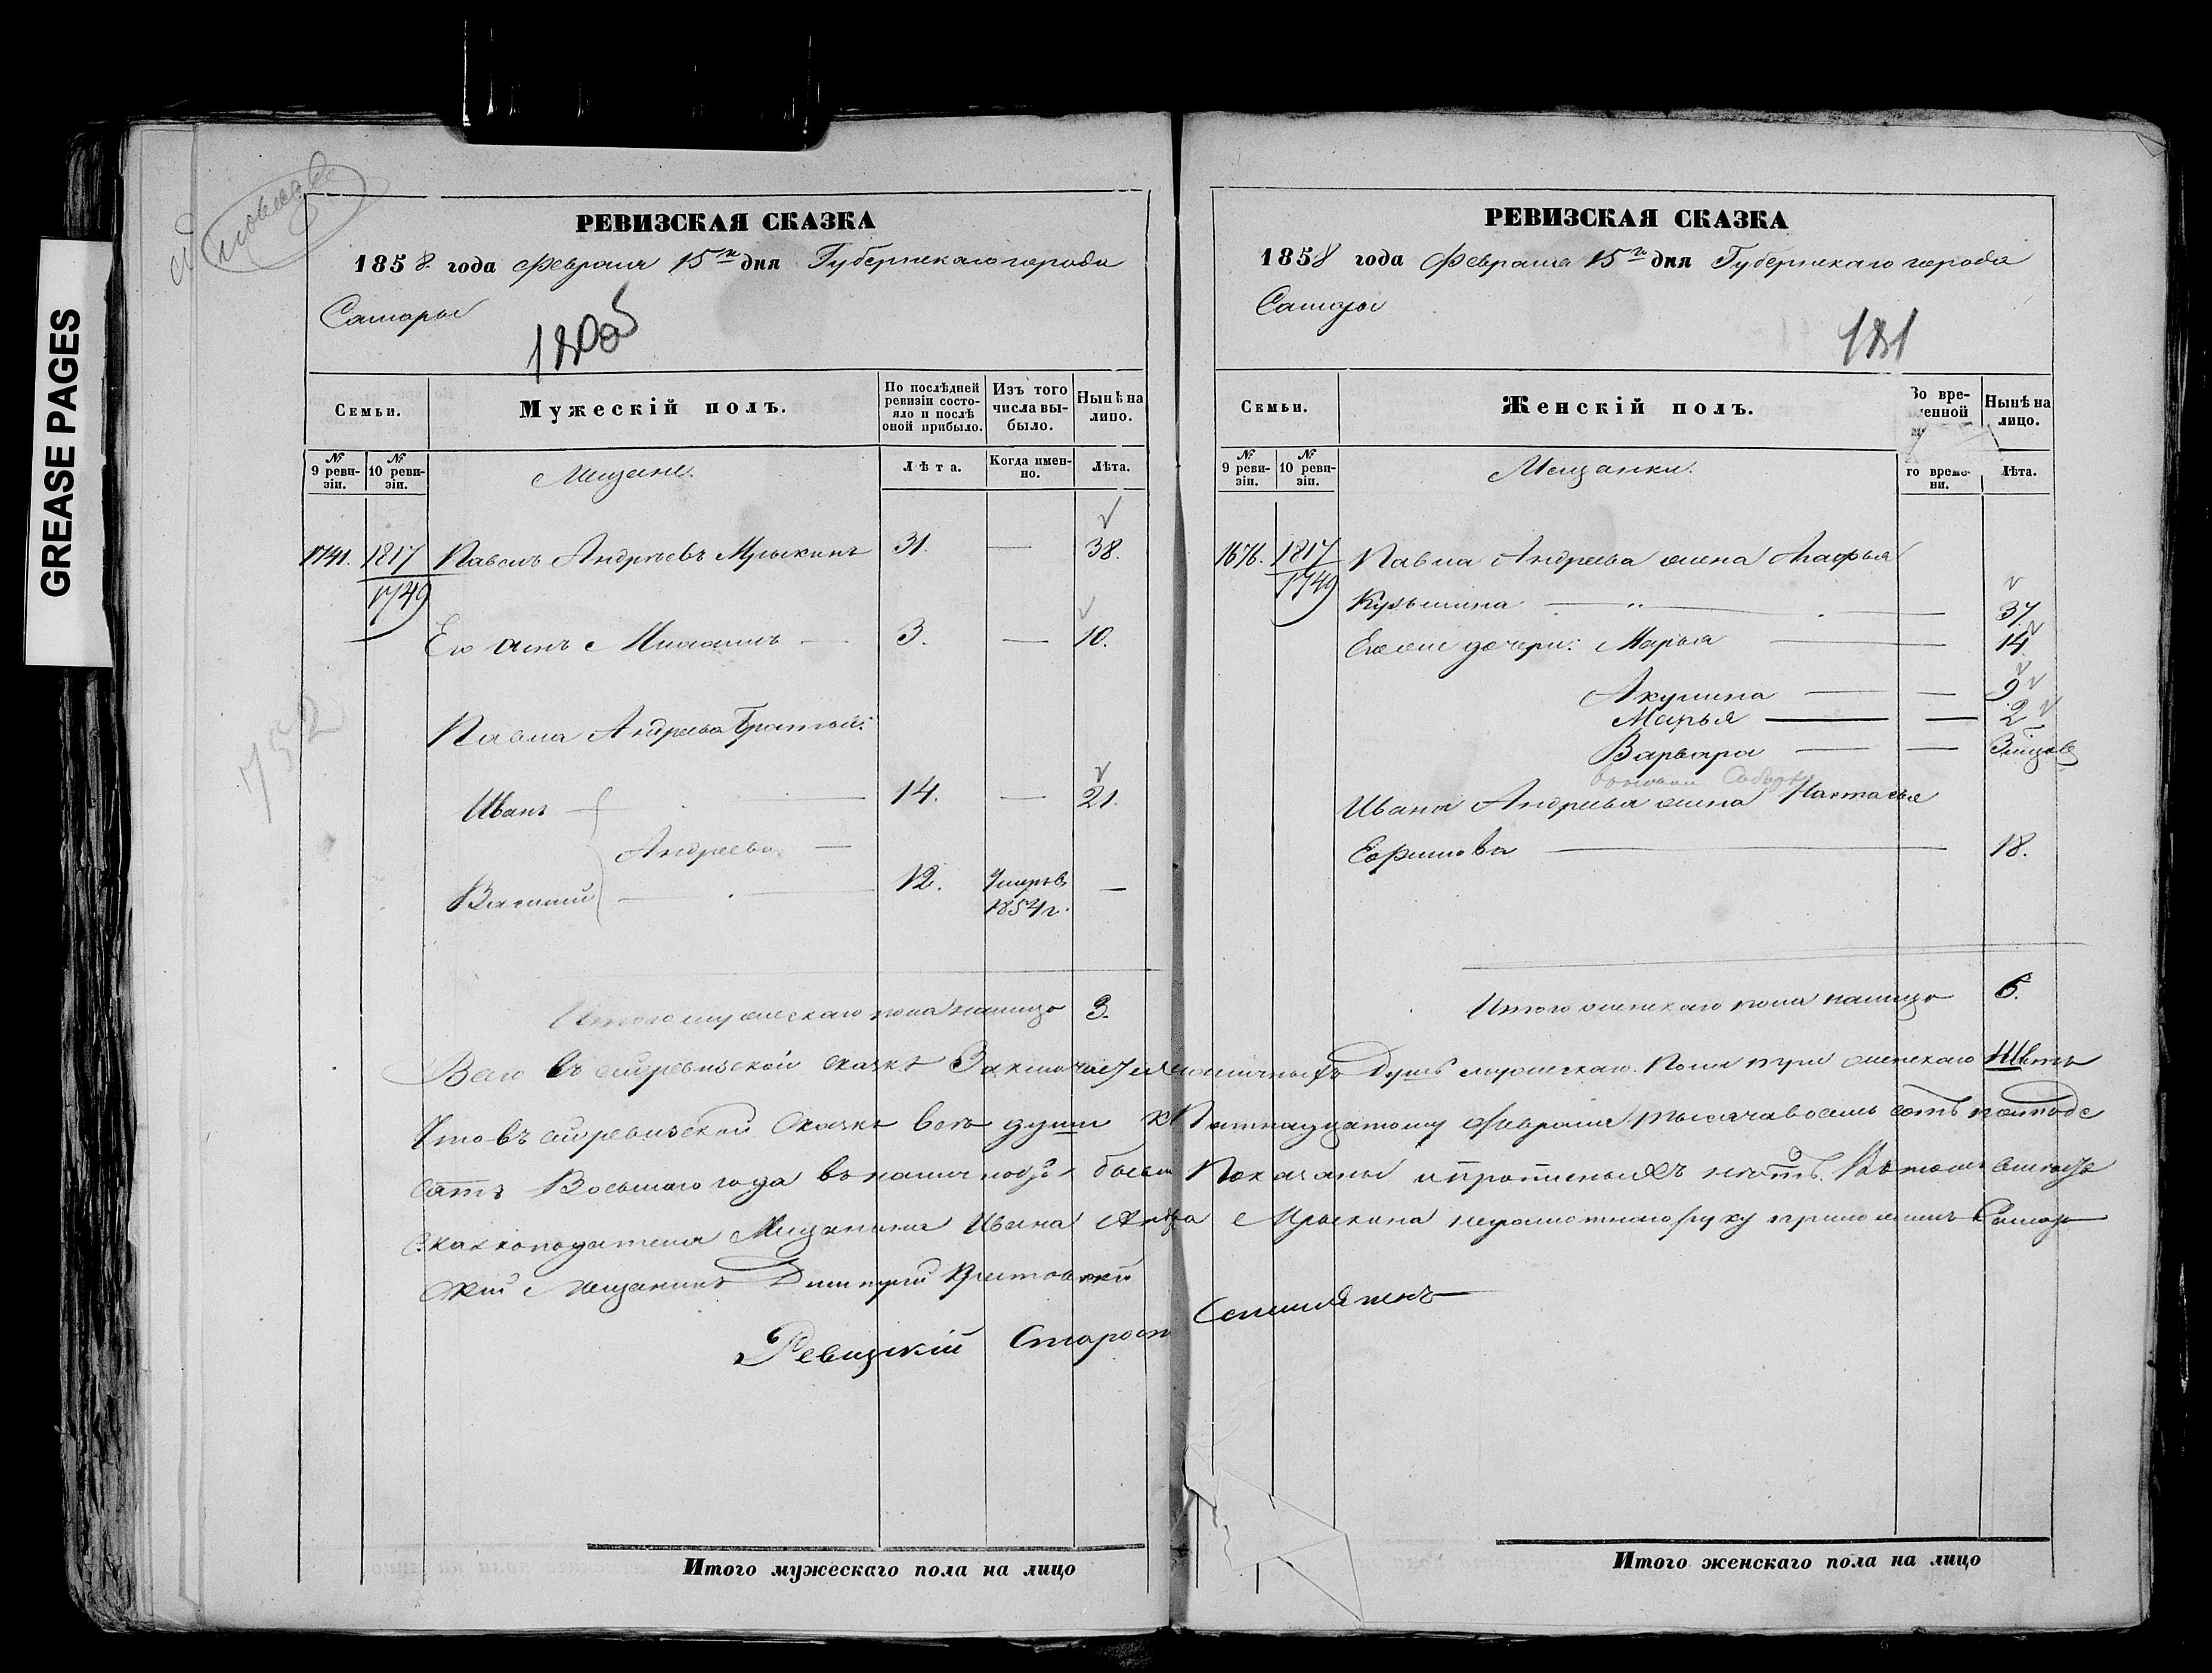 GREASE PAGES
РЕВИЗСКАЯ СКАЗКА
1858 года Февраля 15го дня Губернскаго города
Самары
Семьи.
Мужескій полъ.
По послѣдней ревизіи состояло и послѣ оной прибыло.
Изъ того числа выбыло.
Нынѣ на лицо.
№ 9 ревизіи.
№ 10 ревизіи.
Мещане.
Лѣта.
Когда именно.
Лѣта.
1741. 1817 Павелъ Андреевъ Мрыкинъ 31. — 38.
1749
Его сынъ 3. — 10.
Павла Андреева Братья:
Иванъ 14. — 21.
Андреевы —
Василій 12. Умеръ въ —
1854 г.
Итого мужескаго пола налицо 3.
РЕВИЗСКАЯ СКАЗКА
1858 года Февраля 15го дня Губернскаго города
Самары
181
Семьи.
Женскій полъ.
Во вре-
менной
Нынѣ на лицо.
№ 9 ревизіи.
№ 10 ревизіи.
Мещанки.
го времени.
Лѣта.
1676. 1817 Павла Андреева жена Агафья
1749
Кузьмина — 37
Ихъ дочери: Марья — 14
Акулина — — 9
Марья — — 2
Варвара — — 3 месяца
Ивана Андреева жена Настасья
Ефимова — 18.
Итого женскаго пола налицо 6.
Всего въ сей ревизской сказкѣ Заключается наличныхъ Душъ мужескаго Пола три женскаго Шесть
Что въ сей ревизской Сказкѣ всѣ души къ Пятнадцатому Февраля тысяча восемь сотъ пятьдесятъ Восьмаго года въ наличности были Показаны и пропис­ныхъ нѣтъ. Въ томъ вместо
Сказкоподателя Мещанина Ивана Андреева Мрыкина неграмотнаго руку приложилъ Самар
скій Мещанинъ Дмитрій
Ревизскій Староста
Итого мужескаго пола на лицо
Итого женскаго пола на лицо